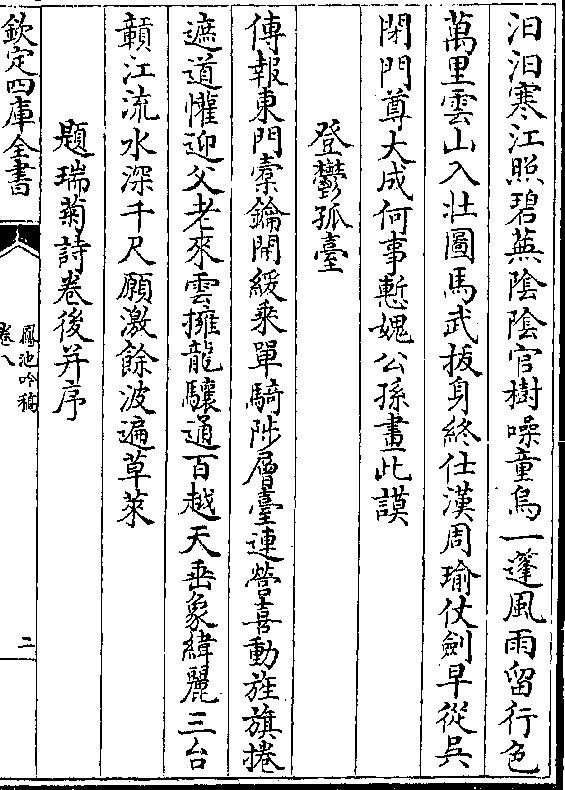 汩汩寒江照碧蕪陰陰官樹噪童烏一蓬風雨留行色
萬里雲山入壯圖馬武拔身終仕漢周瑜仗劍早從吳
閉門尊大成何事慙媿公孫畫此謨
登鬱孤臺
傳報東門橐鑰開緩乘單騎陟層臺連營喜動旌旗捲
遮道懽迎父老來雲擁龍驤通百越天垂象緯麗三台
贑江流水深千尺願激餘波遍草萊
題瑞菊詩卷後并序
欽定四庫全書
鳳池吟稿
卷八
二